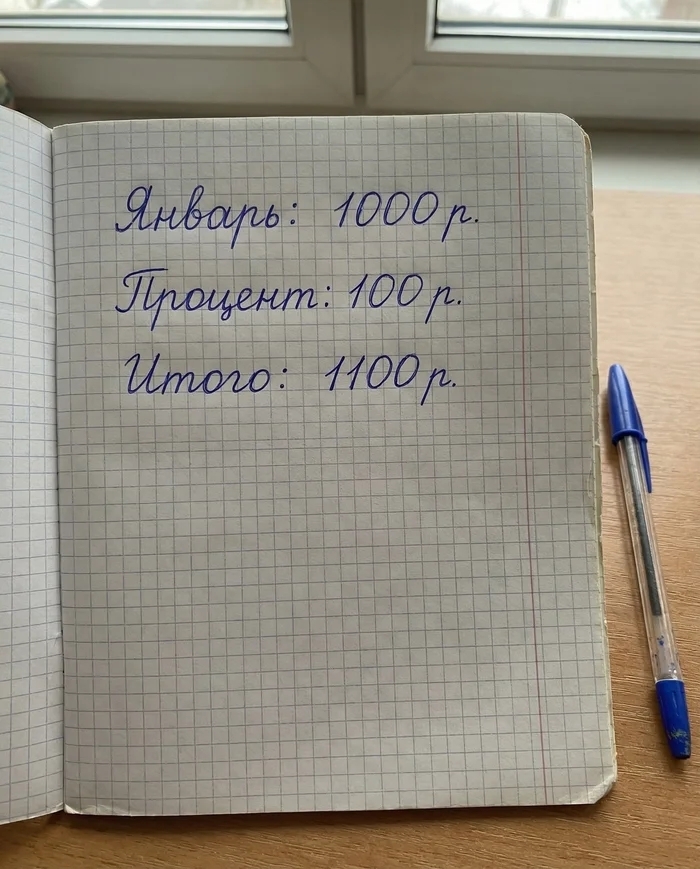 Январь: 1000 р.
Процент: 100 р.
Итого: 1100 р.